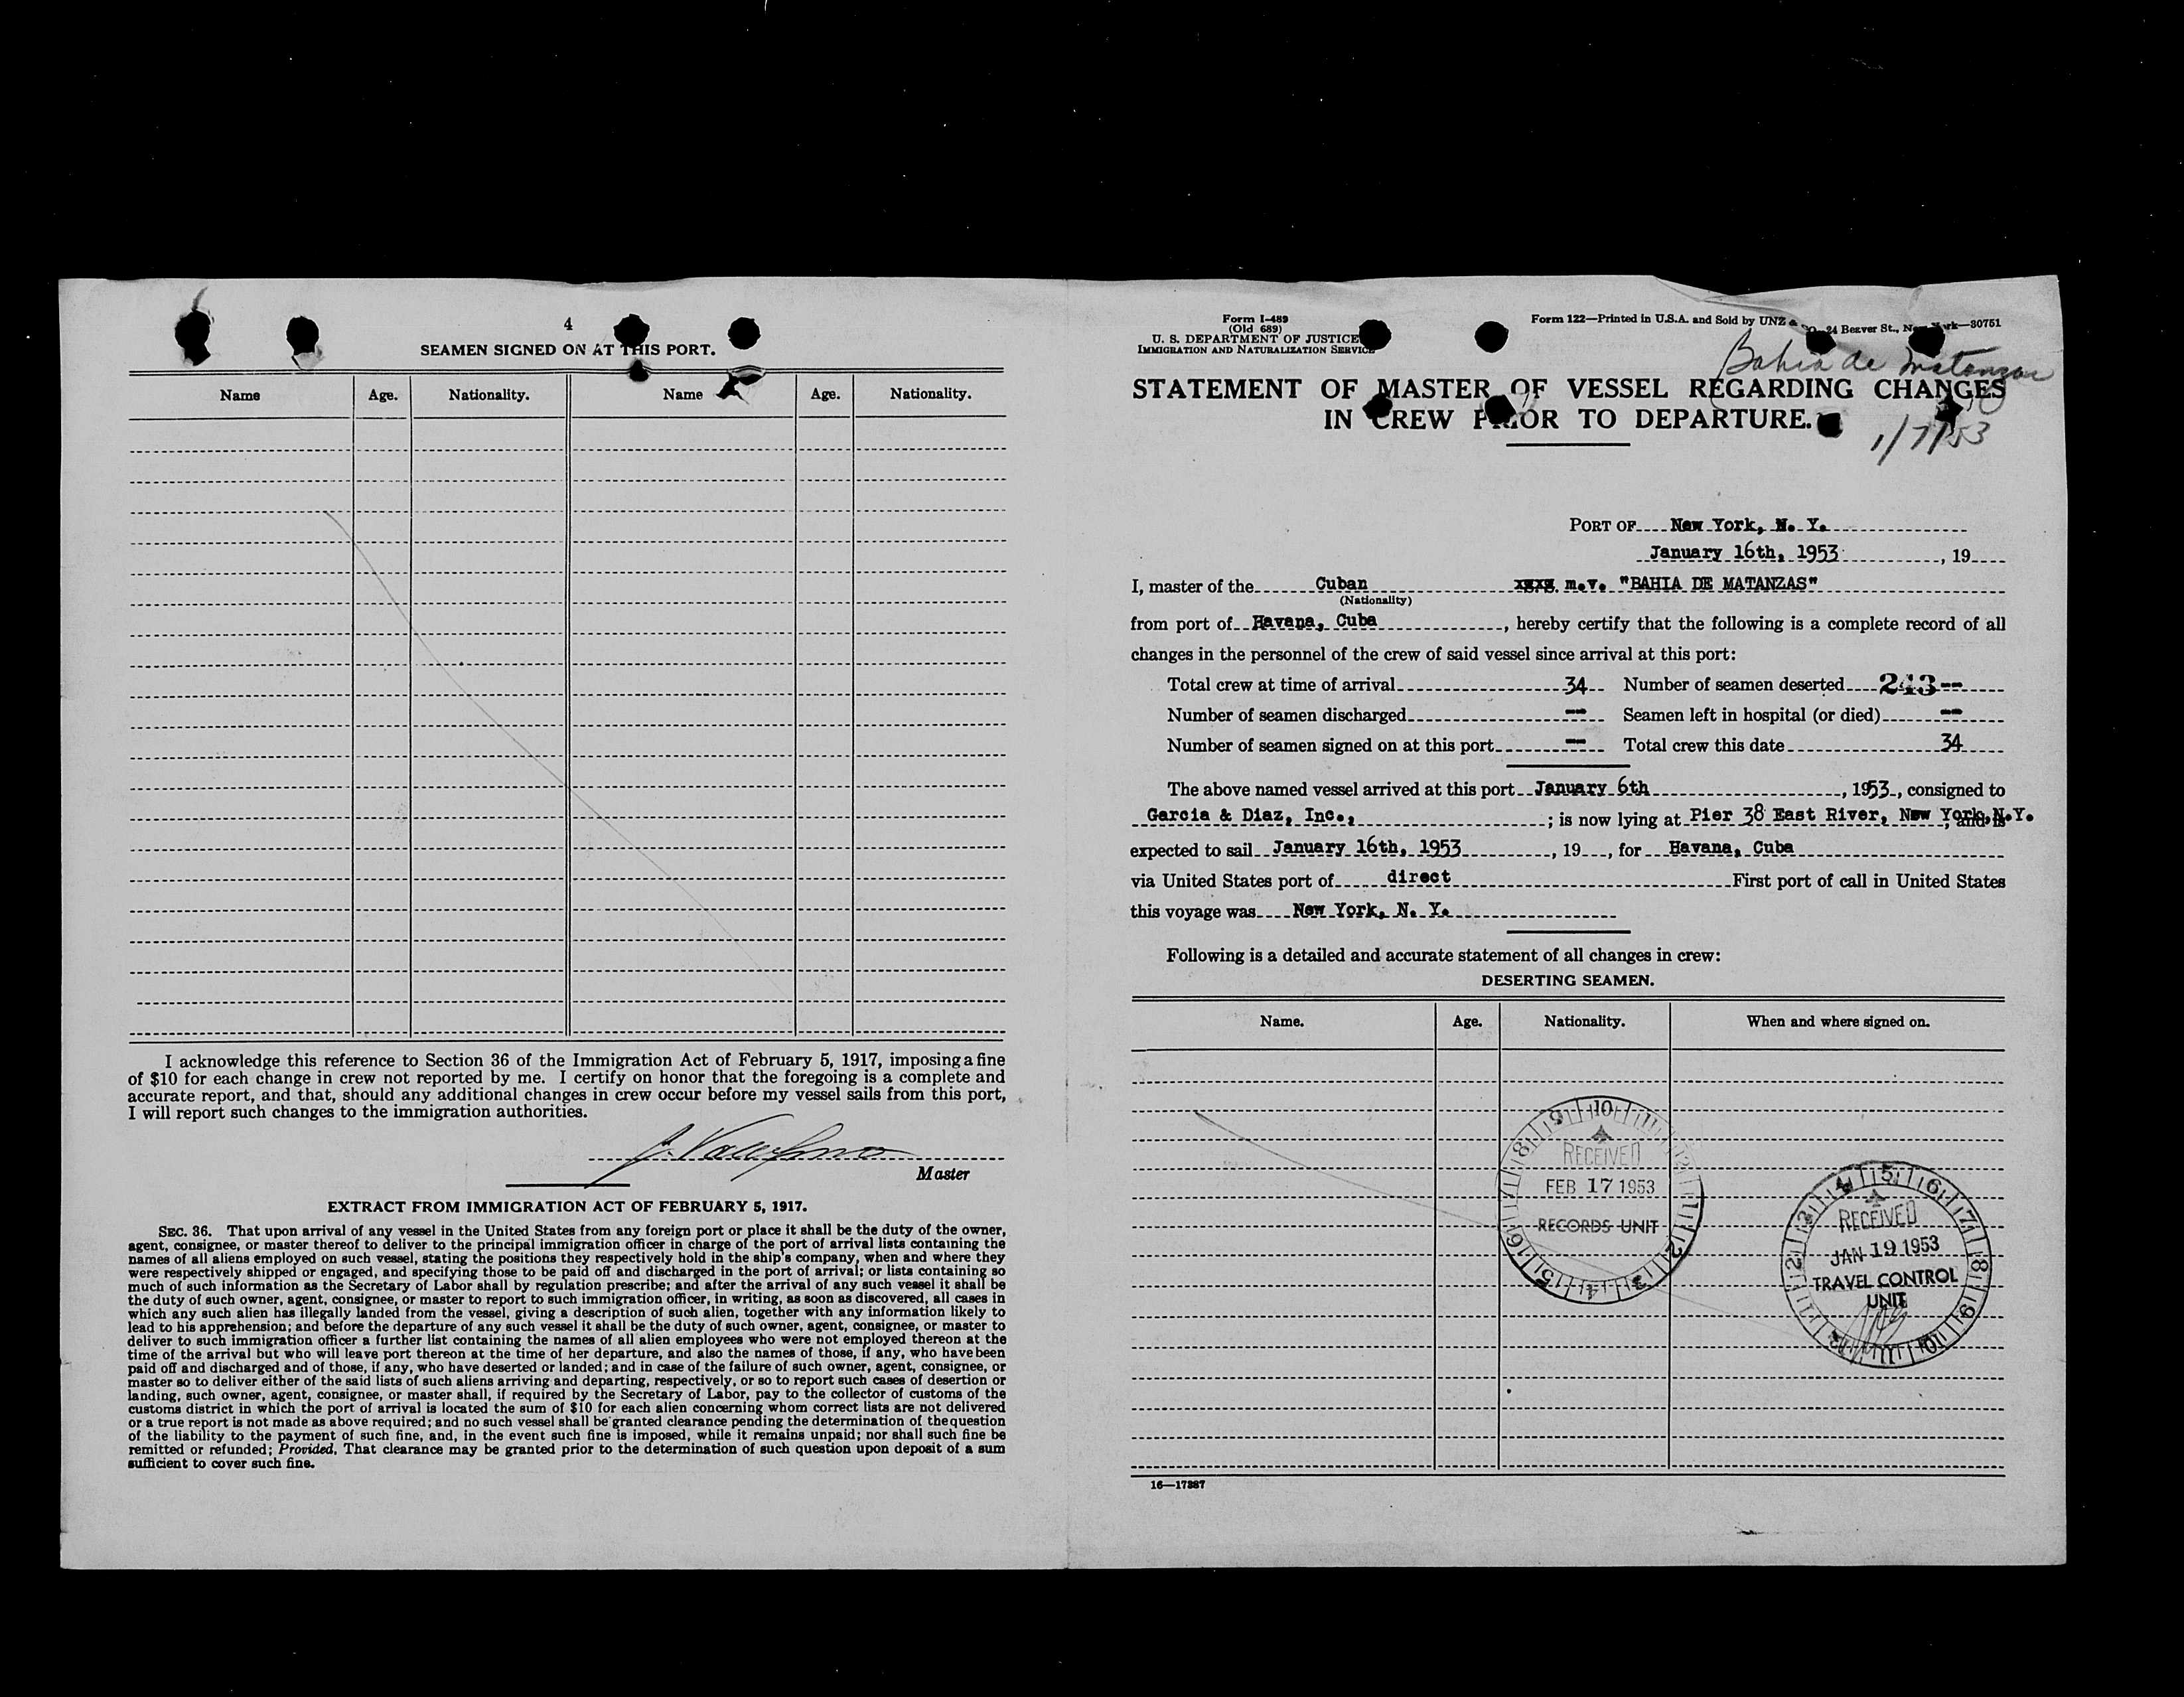 4
SEAMEN SIGNED ON AT THIS PORT.
Name Age. Nationality. Name Age. Nationality.
I acknowledge this reference to Section 36 of the Immigration Act of February 5, 1917, imposing a fine
of $10 for each change in crew not reported by me. I certify on honor that the foregoing is a complete and
accurate report, and that, should any additional changes in crew occur before my vessel sails from this port,
I will report such changes to the immigration authorities.
Master
EXTRACT FROM IMMIGRATION ACT OF FEBRUARY 5, 1917.
SEC. 36. That upon arrival of any vessel in the United States from any foreign port or place it shall be the duty of the owner,
agent, consignee, or master thereof to deliver to the principal immigration officer in charge of the port of arrival lists containing the
names of all aliens employed on such vessel, stating the positions they respectively hold in the ship's company, when and where they
were respectively shipped or engaged, and specifying those to be paid off and discharged in the port of arrival; or lists containing so
much of such information as the Secretary of Labor shall by regulation prescribe; and after the arrival of any such vessel it shall be
the duty of such owner, agent, consignee, or master to report to such immigration officer, in writing, as soon as discovered, all cases in
which any such alien has illegally landed from the vessel, giving a description of such alien, together with any information likely to
lead to his apprehension; and before the departure of any such vessel it shall be the duty of such owner, agent, consignee, or master to
deliver to such immigration officer a further list containing the names of all alien employees who were not employed thereon at the
time of the arrival but who will leave port thereon at the time of her departure, and also the names of those, if any, who have been
paid off and discharged and of those, if any, who have deserted or landed; and in case of the failure of such owner, agent, consignee, or
master so to deliver either of the said lists of such aliens arriving and departing, respectively, or so to report such cases of desertion or
landing, such owner, agent, consignee, or master shall, if required by the Secretary of Labor, pay to the collector of customs of the
customs district in which the port of arrival is located the sum of $10 for each alien concerning whom correct lists are not delivered
or a true report is not made as above required; and no such vessel shall be granted clearance pending the determination of the question
of the liability to the payment of such fine, and, in the event such fine is imposed, while it remains unpaid; nor shall such fine be
remitted or refunded; Provided, That clearance may be granted prior to the determination of such question upon deposit of a sum
sufficient to cover such fine.
Form I-489
(Old 689)
U. S. DEPARTMENT OF JUSTICE
IMMIGRATION AND NATURALIZATION SERVICE
Form 122—Printed in U.S.A. and Sold by UNZ & CO., 24 Beaver St., New York—30751
Bahia de Matanzas
STATEMENT OF MASTER OF VESSEL REGARDING CHANGES
IN CREW PRIOR TO DEPARTURE.
1/7/53
PORT OF New York, N. Y.
January 16th, 1953, 19
I, master of the Cuban xxxx m.v. "BAHIA DE MATANZAS"
(Nationality)
from port of Havana, Cuba, hereby certify that the following is a complete record of all
changes in the personnel of the crew of said vessel since arrival at this port:
Total crew at time of arrival 34 Number of seamen deserted 243 --
Number of seamen discharged -- Seamen left in hospital (or died) --
Number of seamen signed on at this port -- Total crew this date 34
The above named vessel arrived at this port January 6th, 1953, consigned to
Garcia & Diaz, Inc., ; is now lying at Pier 38 East River, New York, N.Y. , and is
expected to sail January 16th, 1953, 19, for Havana, Cuba
via United States port of direct First port of call in United States
this voyage was New York, N. Y.
Following is a detailed and accurate statement of all changes in crew:
DESERTING SEAMEN.
Name. Age. Nationality. When and where signed on.
RECEIVED
FEB 17 1953
RECORDS UNIT
RECEIVED
JAN 19 1953
TRAVEL CONTROL
UNIT
16—17387